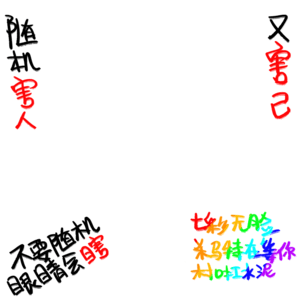 随机害人
又害己
不要随机
眼睛会瞎
七彩无脸
杀马特在等你
村口扛水泥